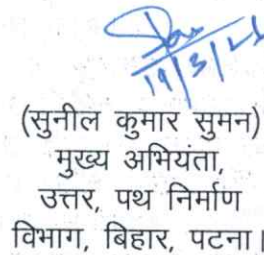 19/3/21
(सुनील कुमार सुमन)
मुख्य अभियंता,
उत्तर, पथ निर्माण
विभाग, बिहार, पटना।